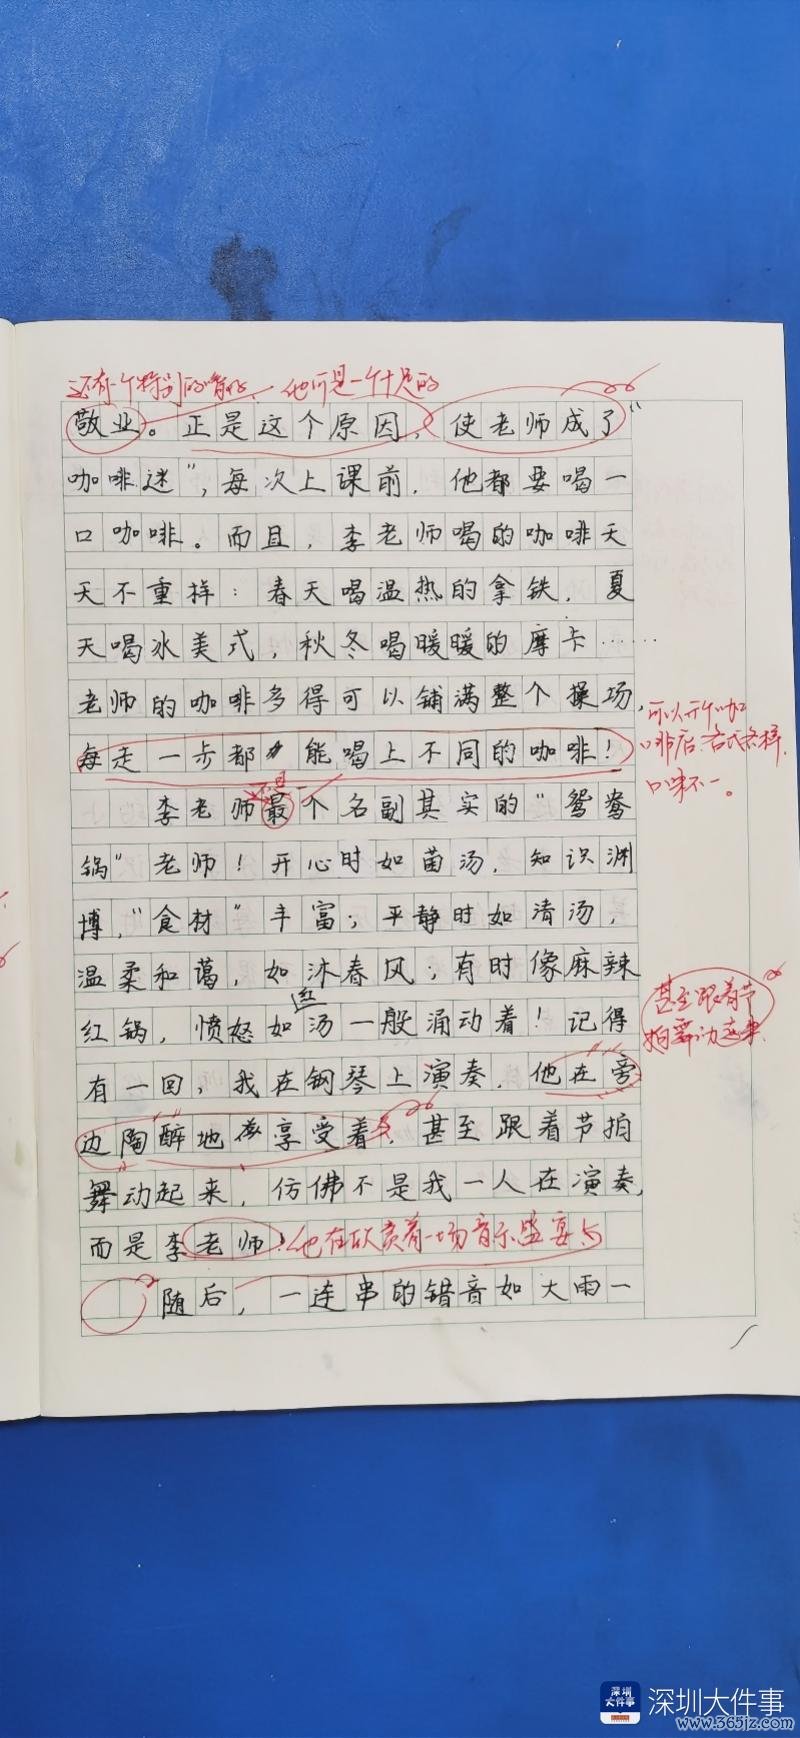 还有一个特别的嗜好，他可是一个十足的
敬业。正是这个原因，使老师成了“
咖啡迷”，每次上课前，他都要喝一
口咖啡。而且，李老师喝的咖啡天
天不重样：春天喝温热的拿铁，夏
天喝冰美式，秋冬喝暖暖的摩卡……
老师的咖啡多得可以铺满整个操场，
每走一步都能喝上不同的咖啡！
可以开个咖
啡店，各式各样，
口味不一。
还是
李老师最个名副其实的“鸳鸯
锅”老师！开心时如菌汤，知识渊
博，“食材”丰富；平静时如清汤，
温柔和蔼，如沐春风；有时像麻辣
红锅，愤怒如红汤一般涌动着！记得
有一回，我在钢琴上演奏，他在旁
边陶醉地享受着，甚至跟着节拍
舞动起来，仿佛不是我一人在演奏，
甚至跟着节
拍舞动起来
而是李老师！他在欣赏着一场音乐盛宴
随后，一连串的错音如大雨一
深圳大件事
深圳大件事
www.365jz.com